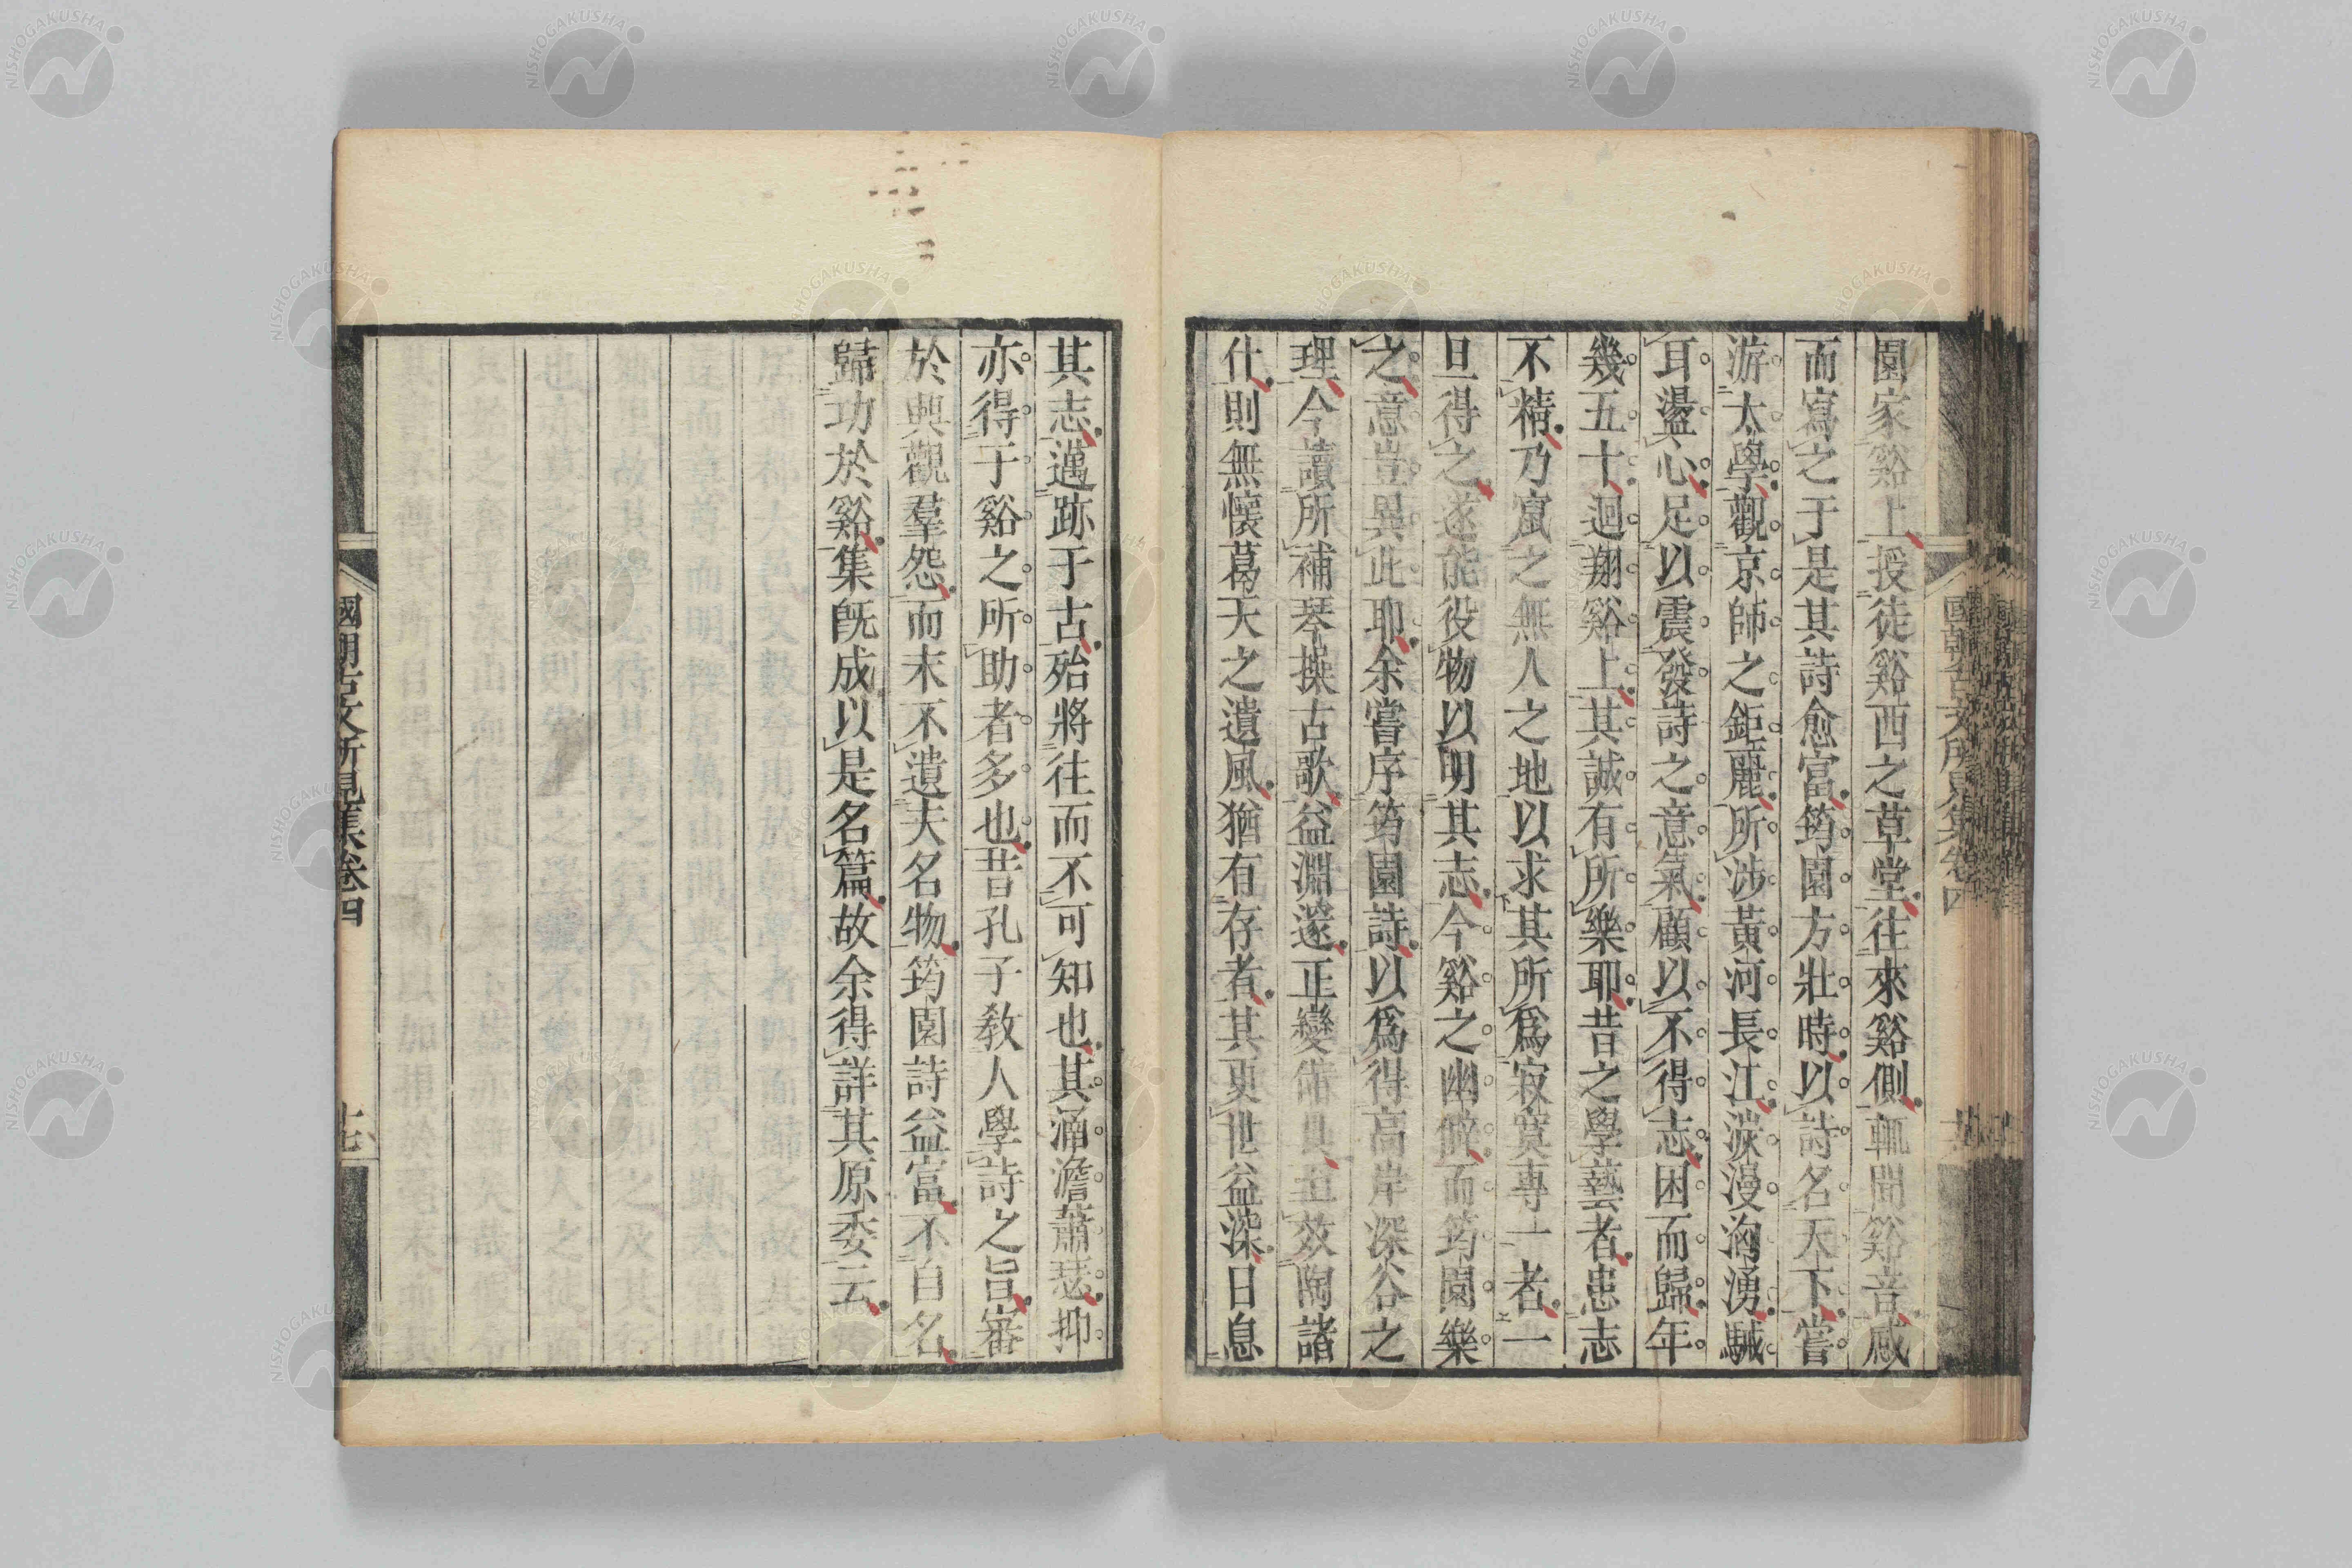 園家谿上授徒谿西之草堂往來谿側輒聞谿音感
而寫之于是其詩愈富筠園方壯時以詩名天下嘗
游太學觀京師之鉅麗所涉黃河長江淡漫洶湧駴
耳盪心足以震發詩之意氣顧以不得志困而歸年
幾五十迴翔谿上其誠有所樂耶昔之學藝者患志
不精乃竄之無人之地以求其所爲寂寞專一者一
旦得之遂能役物以明其志今谿之幽僻而筠園樂
之意豈異此耶余嘗序筠園詩以爲得高岸深谷之
理今讀所補琴操古歌益淵邃正變備具且效陶諸
什則無懷葛天之遺風猶有存者其更世益深日息
國朝古文所見集卷四
其志邁跡于古殆將往而不可知也其涌澹蕭瑟抑
亦得于谿之所助者多也昔孔子敎人學詩之旨審
於興觀羣怨而末不遺夫名物筠園詩益富不自名
歸功於谿集旣成以是名篇故余得詳其原委云
國朝古文所見集卷四
十七
NISHOGAKUSHA